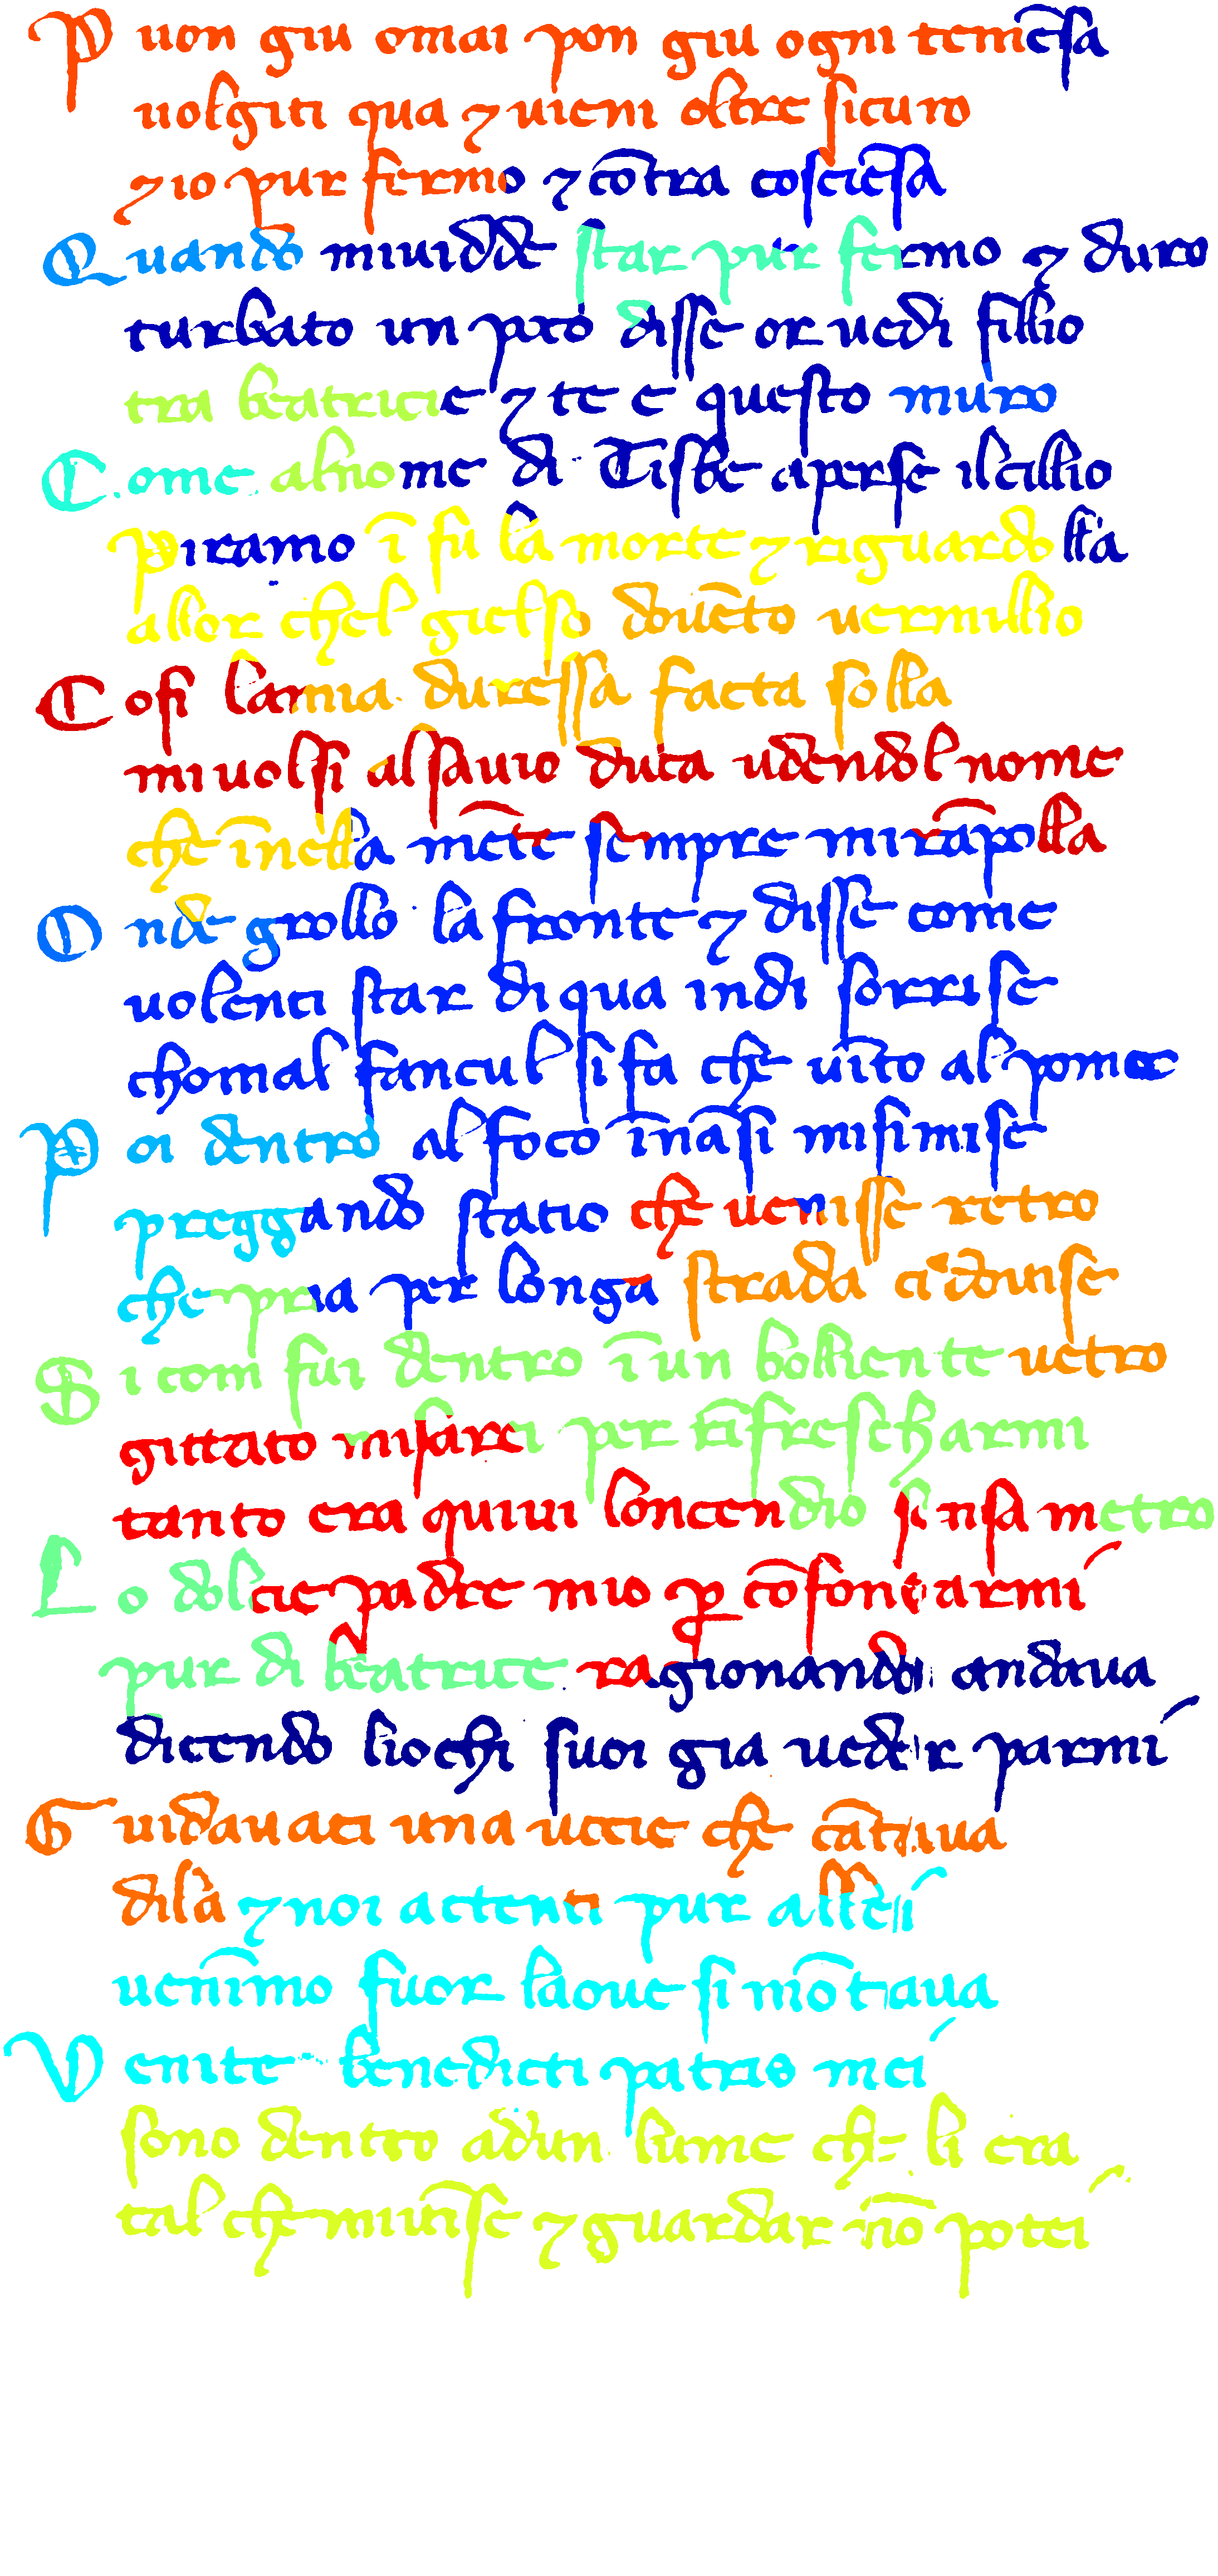 P uon giu omai pon giu ogni tem̄ēsa
uolgiti qua ⁊ uieni oltre sicuro
⁊ io pur fermo ⁊ cōtra cosciēsa
Q uando miuidde star pur fermo ⁊ duro
turbato un pco disse or uedi fillio
tra beatricie ⁊ te e questo muro
C ome alnome di Tisbe aperse ilcillio
Piramo ī fu la morte ⁊ riguardolla
allor chel gielso douēto uermillio
C osi lamia duressa facta solla
miuolsi alsauio duca udendol nome
che īnella mēte sempre mirāpolla
O nde grollo la fronte ⁊ disse come
uolenci star di qua indi sorrise
chomal fanciul si fa che uīto al pome
P oi dentro al foco īnāsi misimise
preggando statio che uenisse retro
che pria per longa strada ci douise
S i com fui dentro ī un bolliente uetro
gittato misarei per rīfrescharmi
tanto era quiui loncendio sensa metro
L o dolcie padre mio p cōfonarmi
pur di beatrice ragionando andaua
dicendo liochi suoi gia ueder parmi
G uidauaci una uocie che cātaua
dila ⁊ noi actenti pur allei
uenīmo fuor laoue si mōtaua
V enite benedicti patris mei
sono dentro adun lume che li era
tal che miuīse ⁊ guardar nō potei